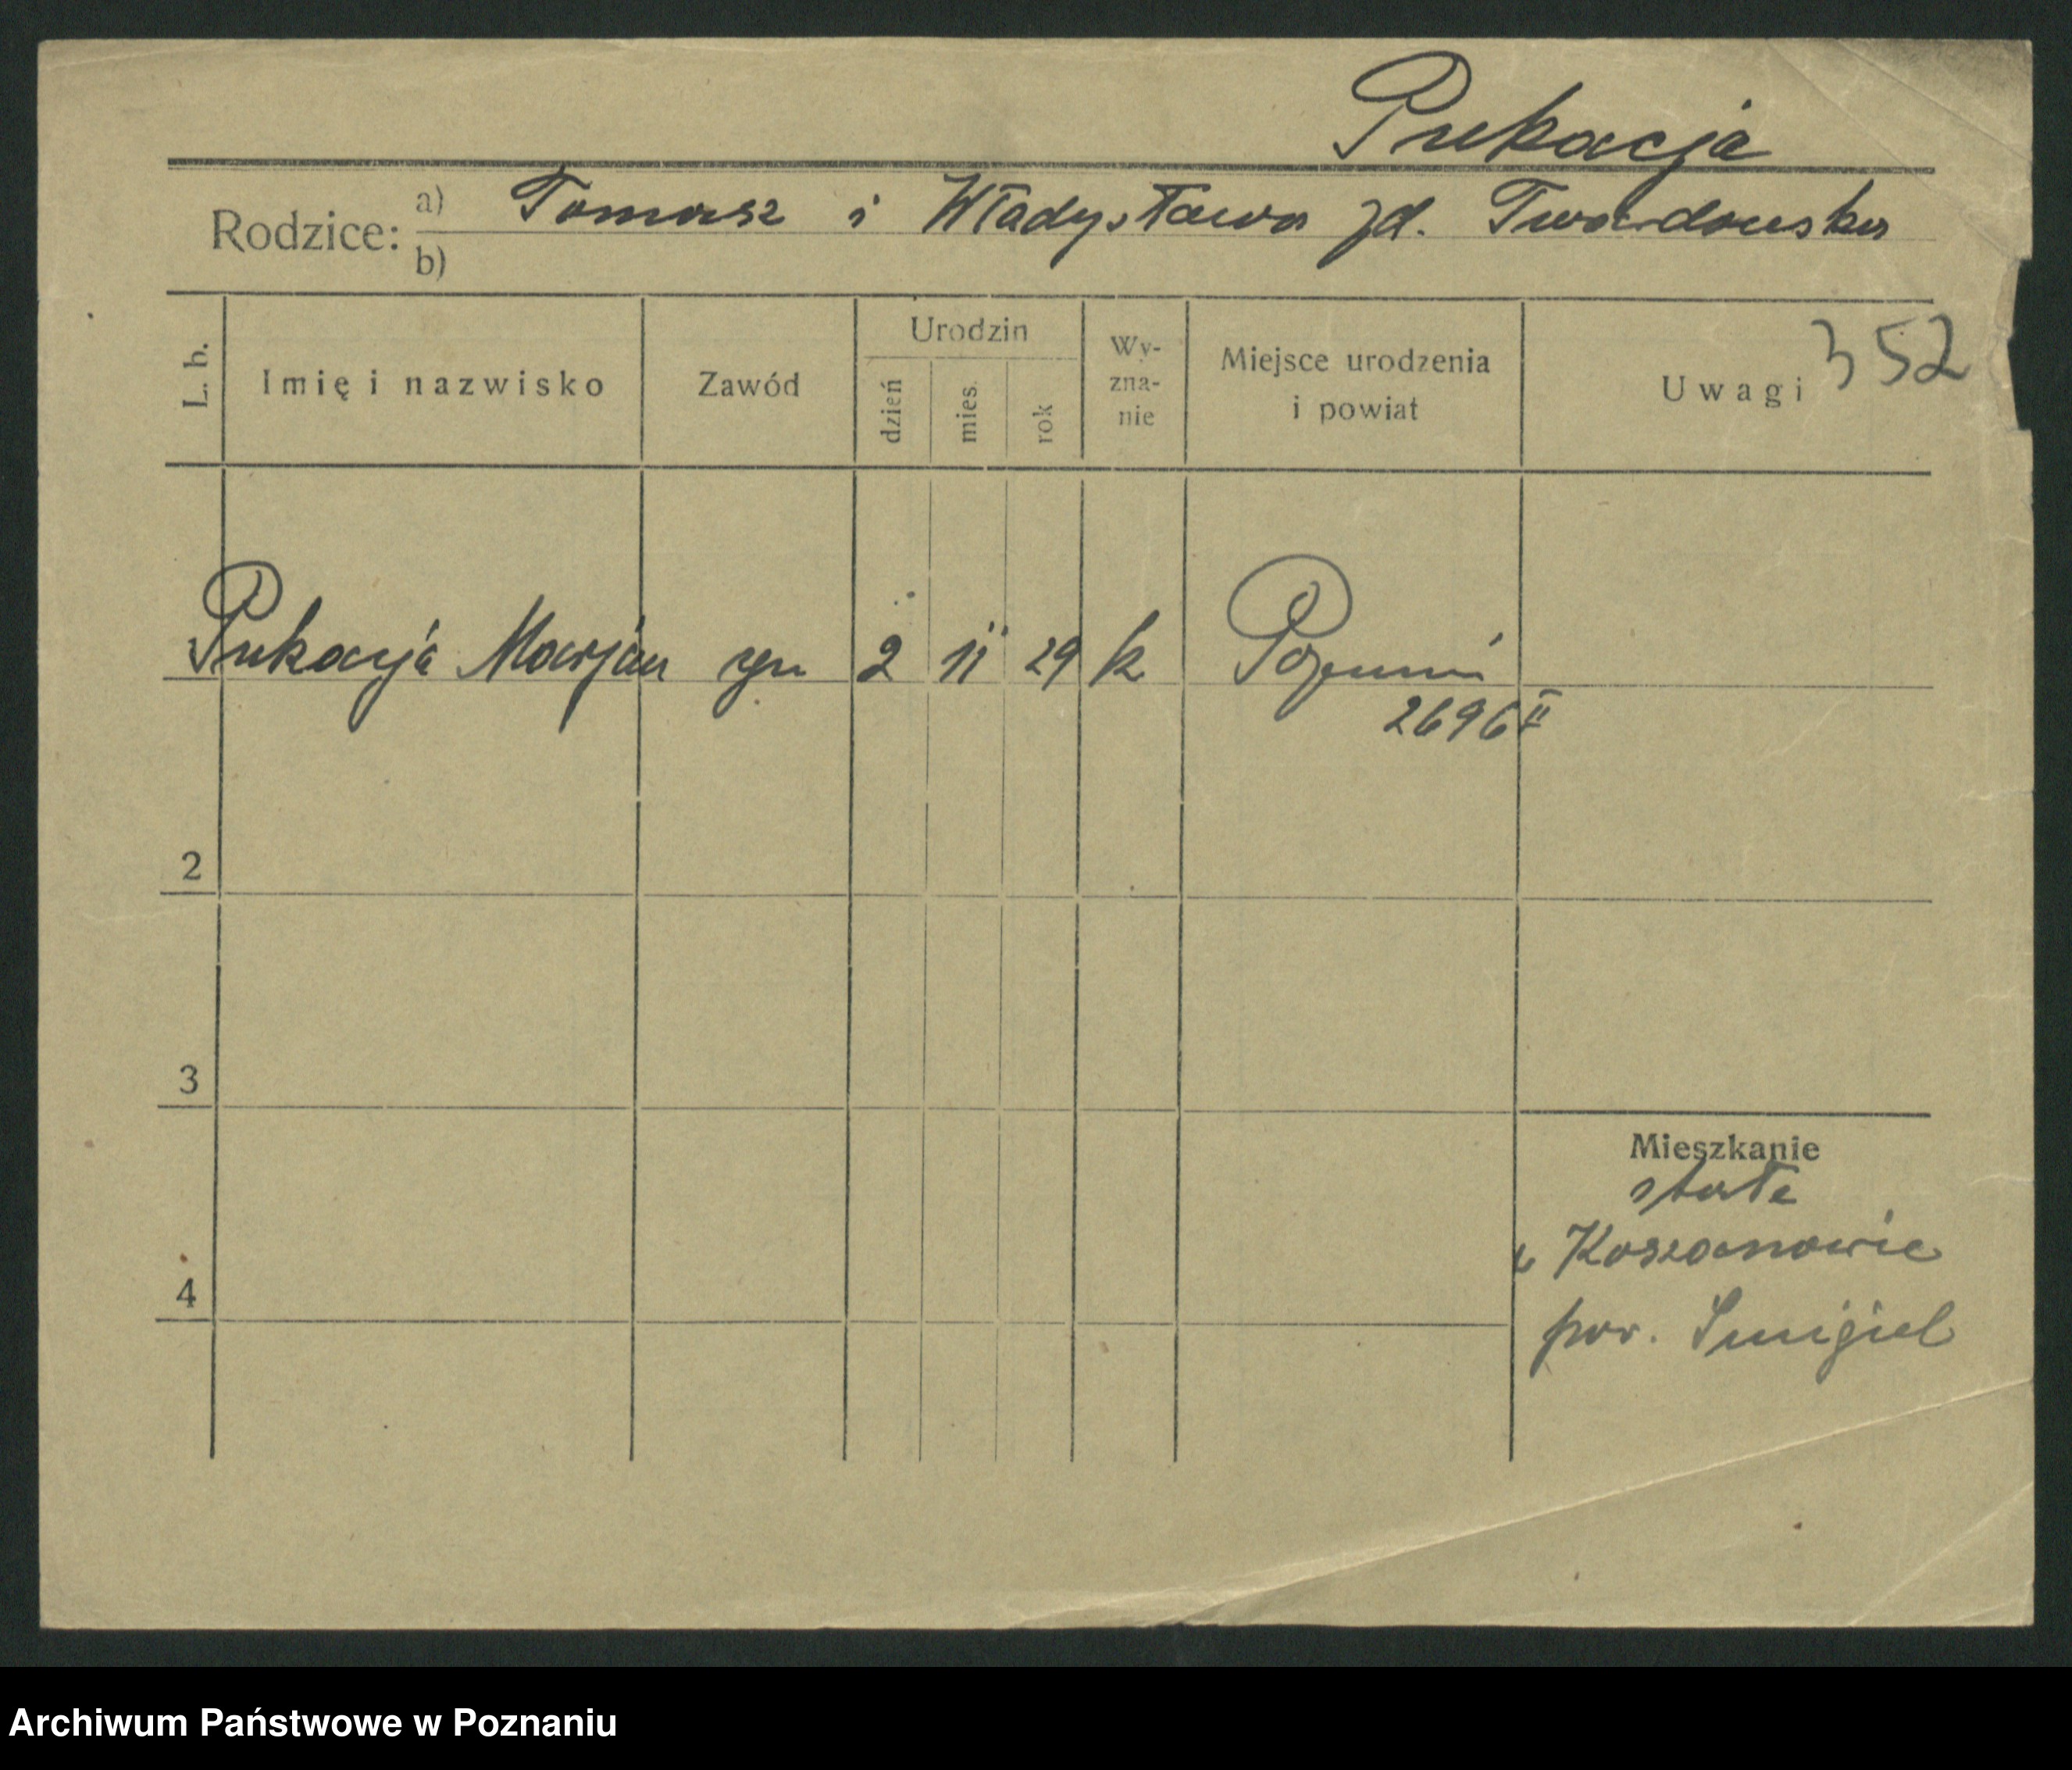 Pukacja
Rodzice: a) Tomasz i Władysława zd. Twardowska
b)
L. b. Imię i nazwisko Zawód Urodzin dzień mies. rok Wy-zna-nie Miejsce urodzenia i powiat Uwagi 352
Pukacja Marjan syn 2 11 29 k Poznań
2696 II
2
3
Mieszkanie
stałe
w Koszanowie
4
pow. Śmigiel
Archiwum Państwowe w Poznaniu